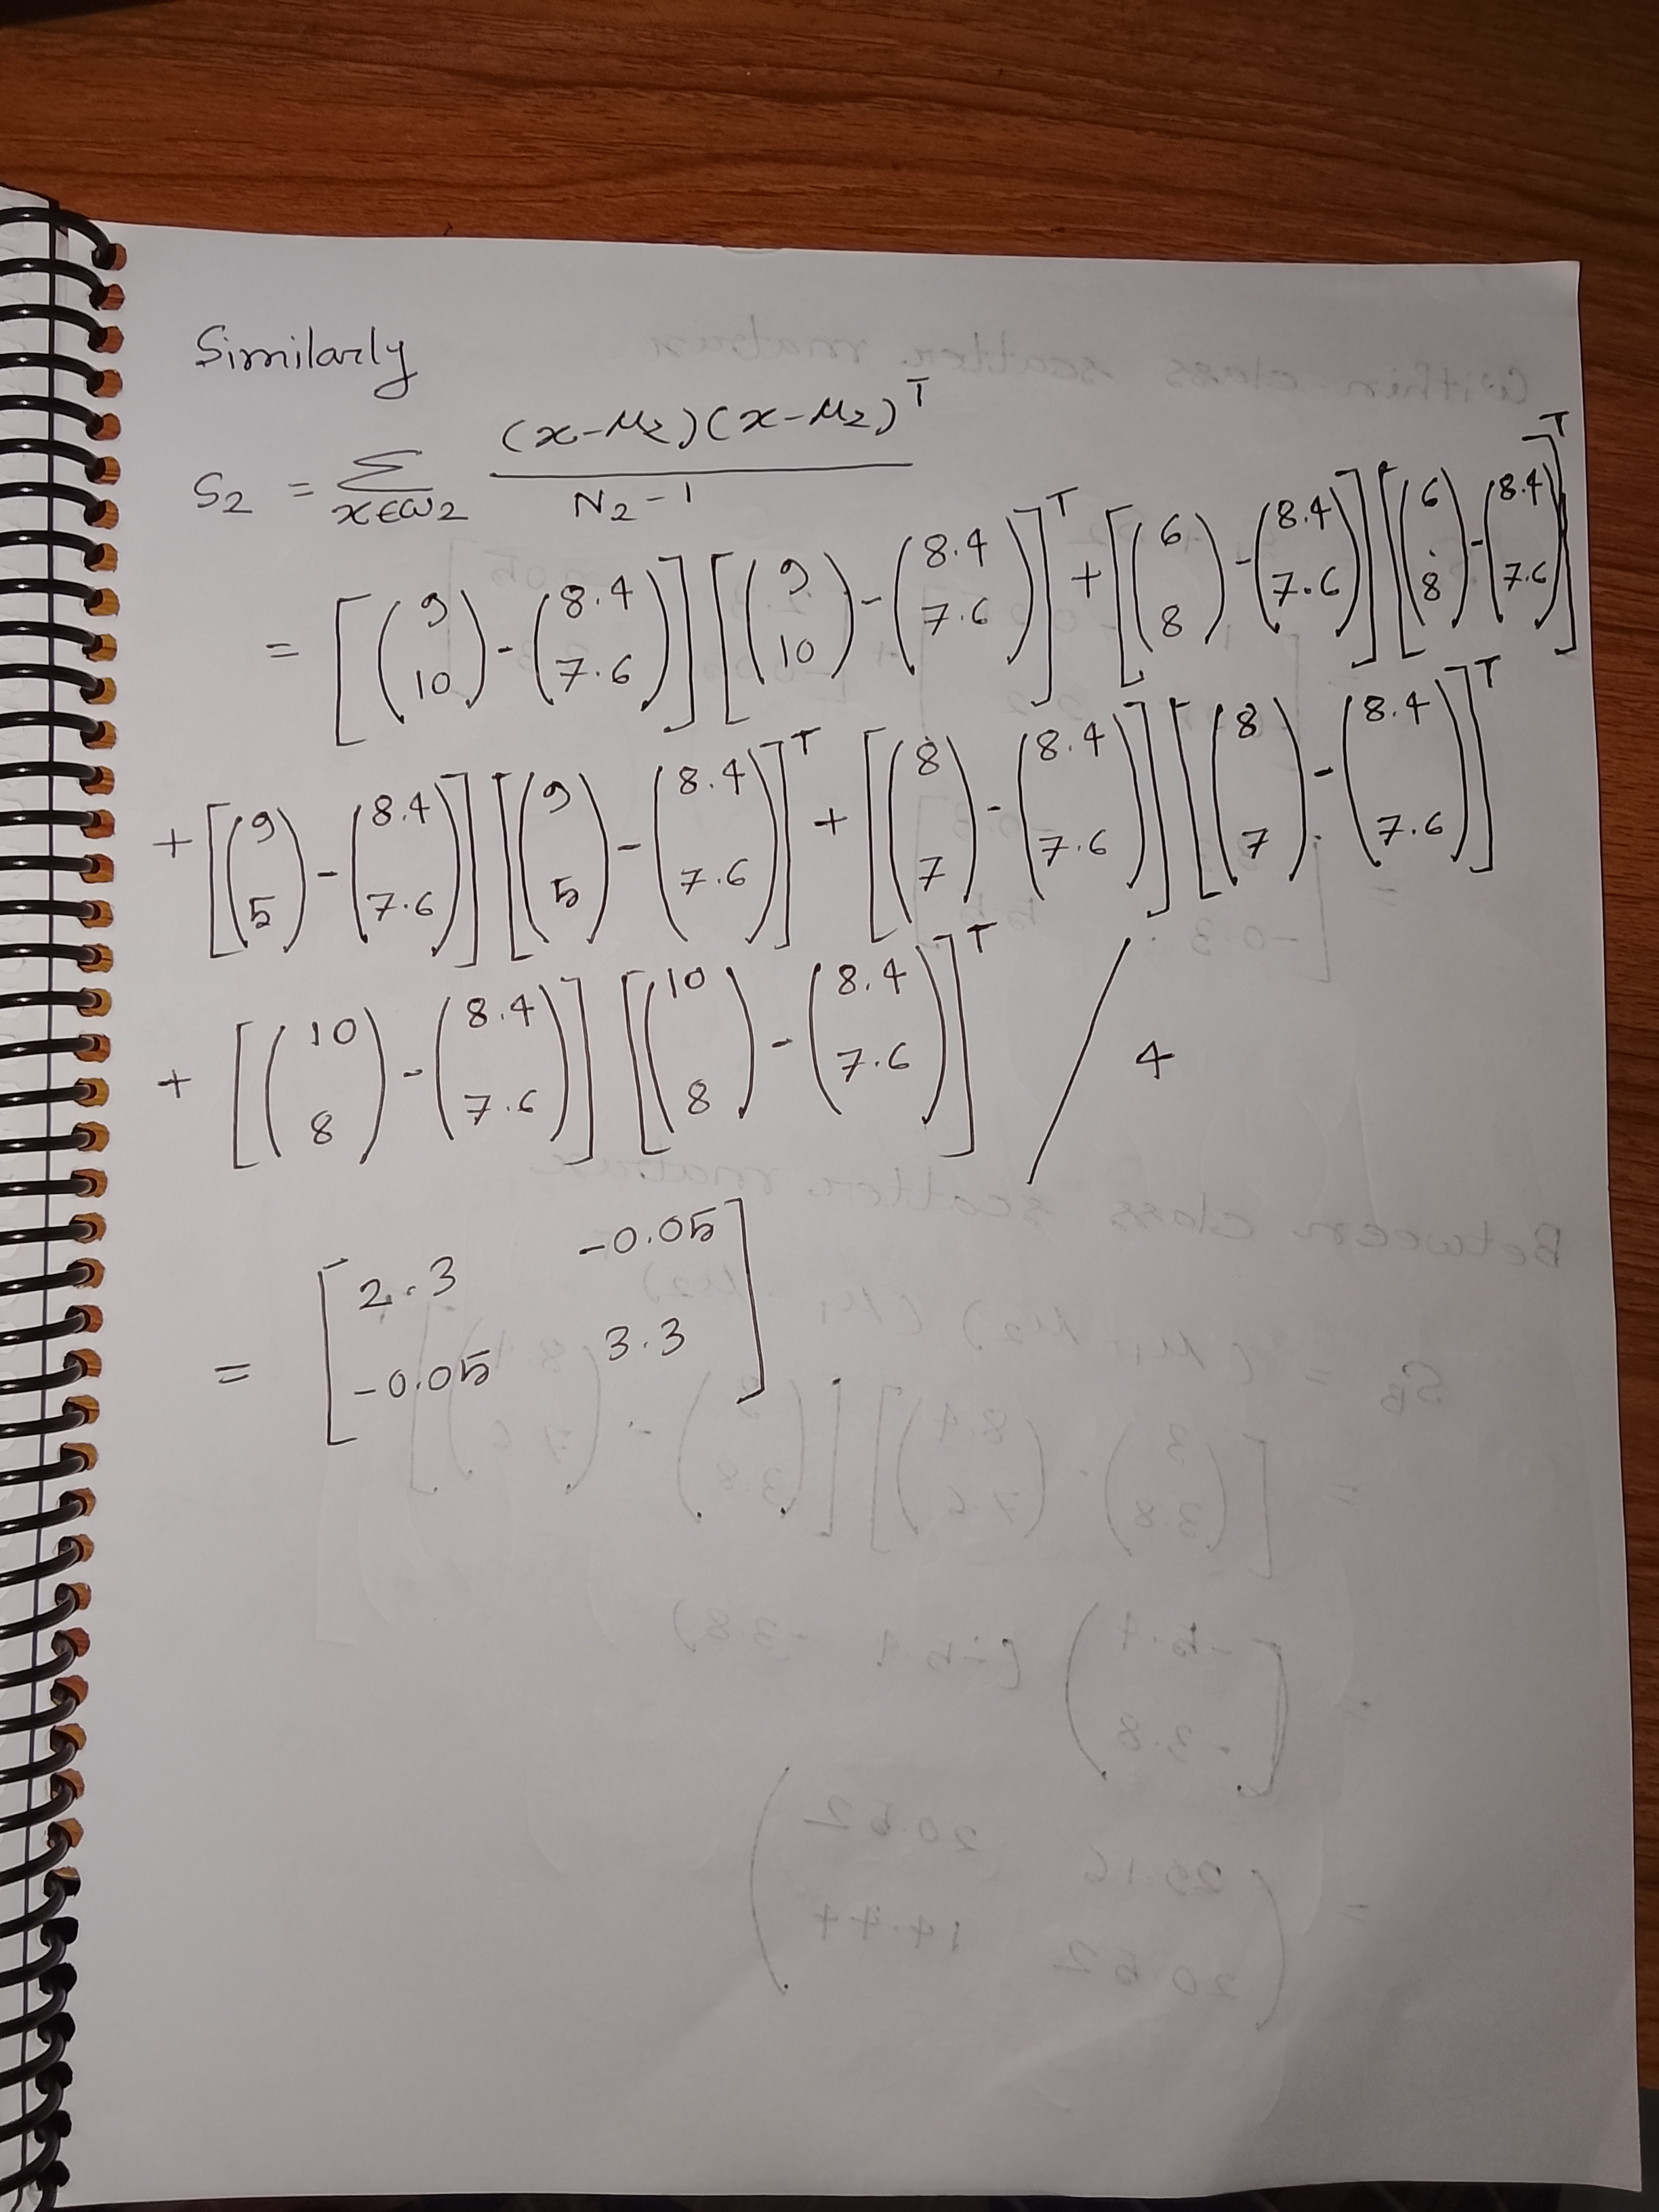 Similarly
S₂ = Σ_{x∈ω₂} (x-μ₂)(x-μ₂)ᵀ / N₂-1
= [(9 10) - (8.4 7.6)] [(9 10) - (8.4 7.6)]ᵀ + [(6 8) - (8.4 7.6)] [(6 8) - (8.4 7.6)]ᵀ
+ [(9 5) - (8.4 7.6)] [(9 5) - (8.4 7.6)]ᵀ + [(8 7) - (8.4 7.6)] [(8 7) - (8.4 7.6)]ᵀ
+ [(10 8) - (8.4 7.6)] [(10 8) - (8.4 7.6)]ᵀ / 4
= [2.3 -0.05
-0.05 3.3]